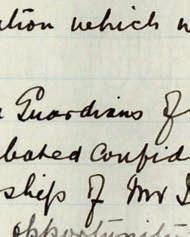 ation which w
Guardians of
bated confid
ship of Mr
opportunit